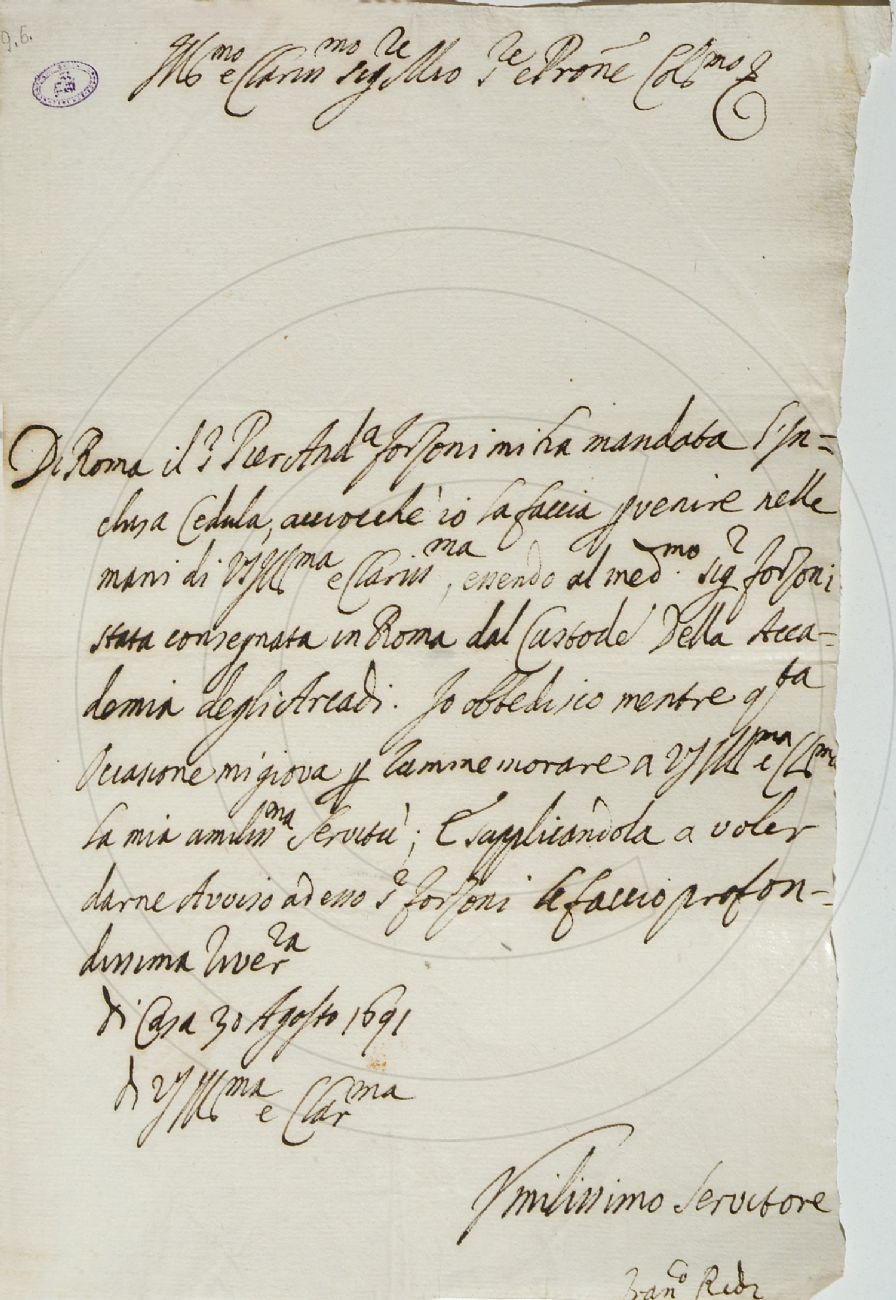 9.6.
Ill.mo e Clariss.mo Sig.re Mio S.re e Pro.ne Col.mo
Di Roma il S.r Pier And.a Forzoni mi ha mandata l'In=
clusa Cedula, acciocchè io la faccia pvenire nelle
mani di VS Ill.ma e Clariss.ma, essendo al med.mo Sig.r Forzoni
stata consegnata in Roma dal Custode della Acca=
demia degli Arcadi. Io obbedisco mentre q.ta
Occasione mi giova p rammemorare a VS Ill.ma e Cl.ma
la mia umiliss.ma Servitù; E supplicandola a voler
darne Avviso ad esso S.r Forzoni le faccio profon=
dissima River.za
di Casa 30 Agosto 1691
di VS Ill.ma e Clar.ma
Umilissimo Servitore
Fran.co Redi